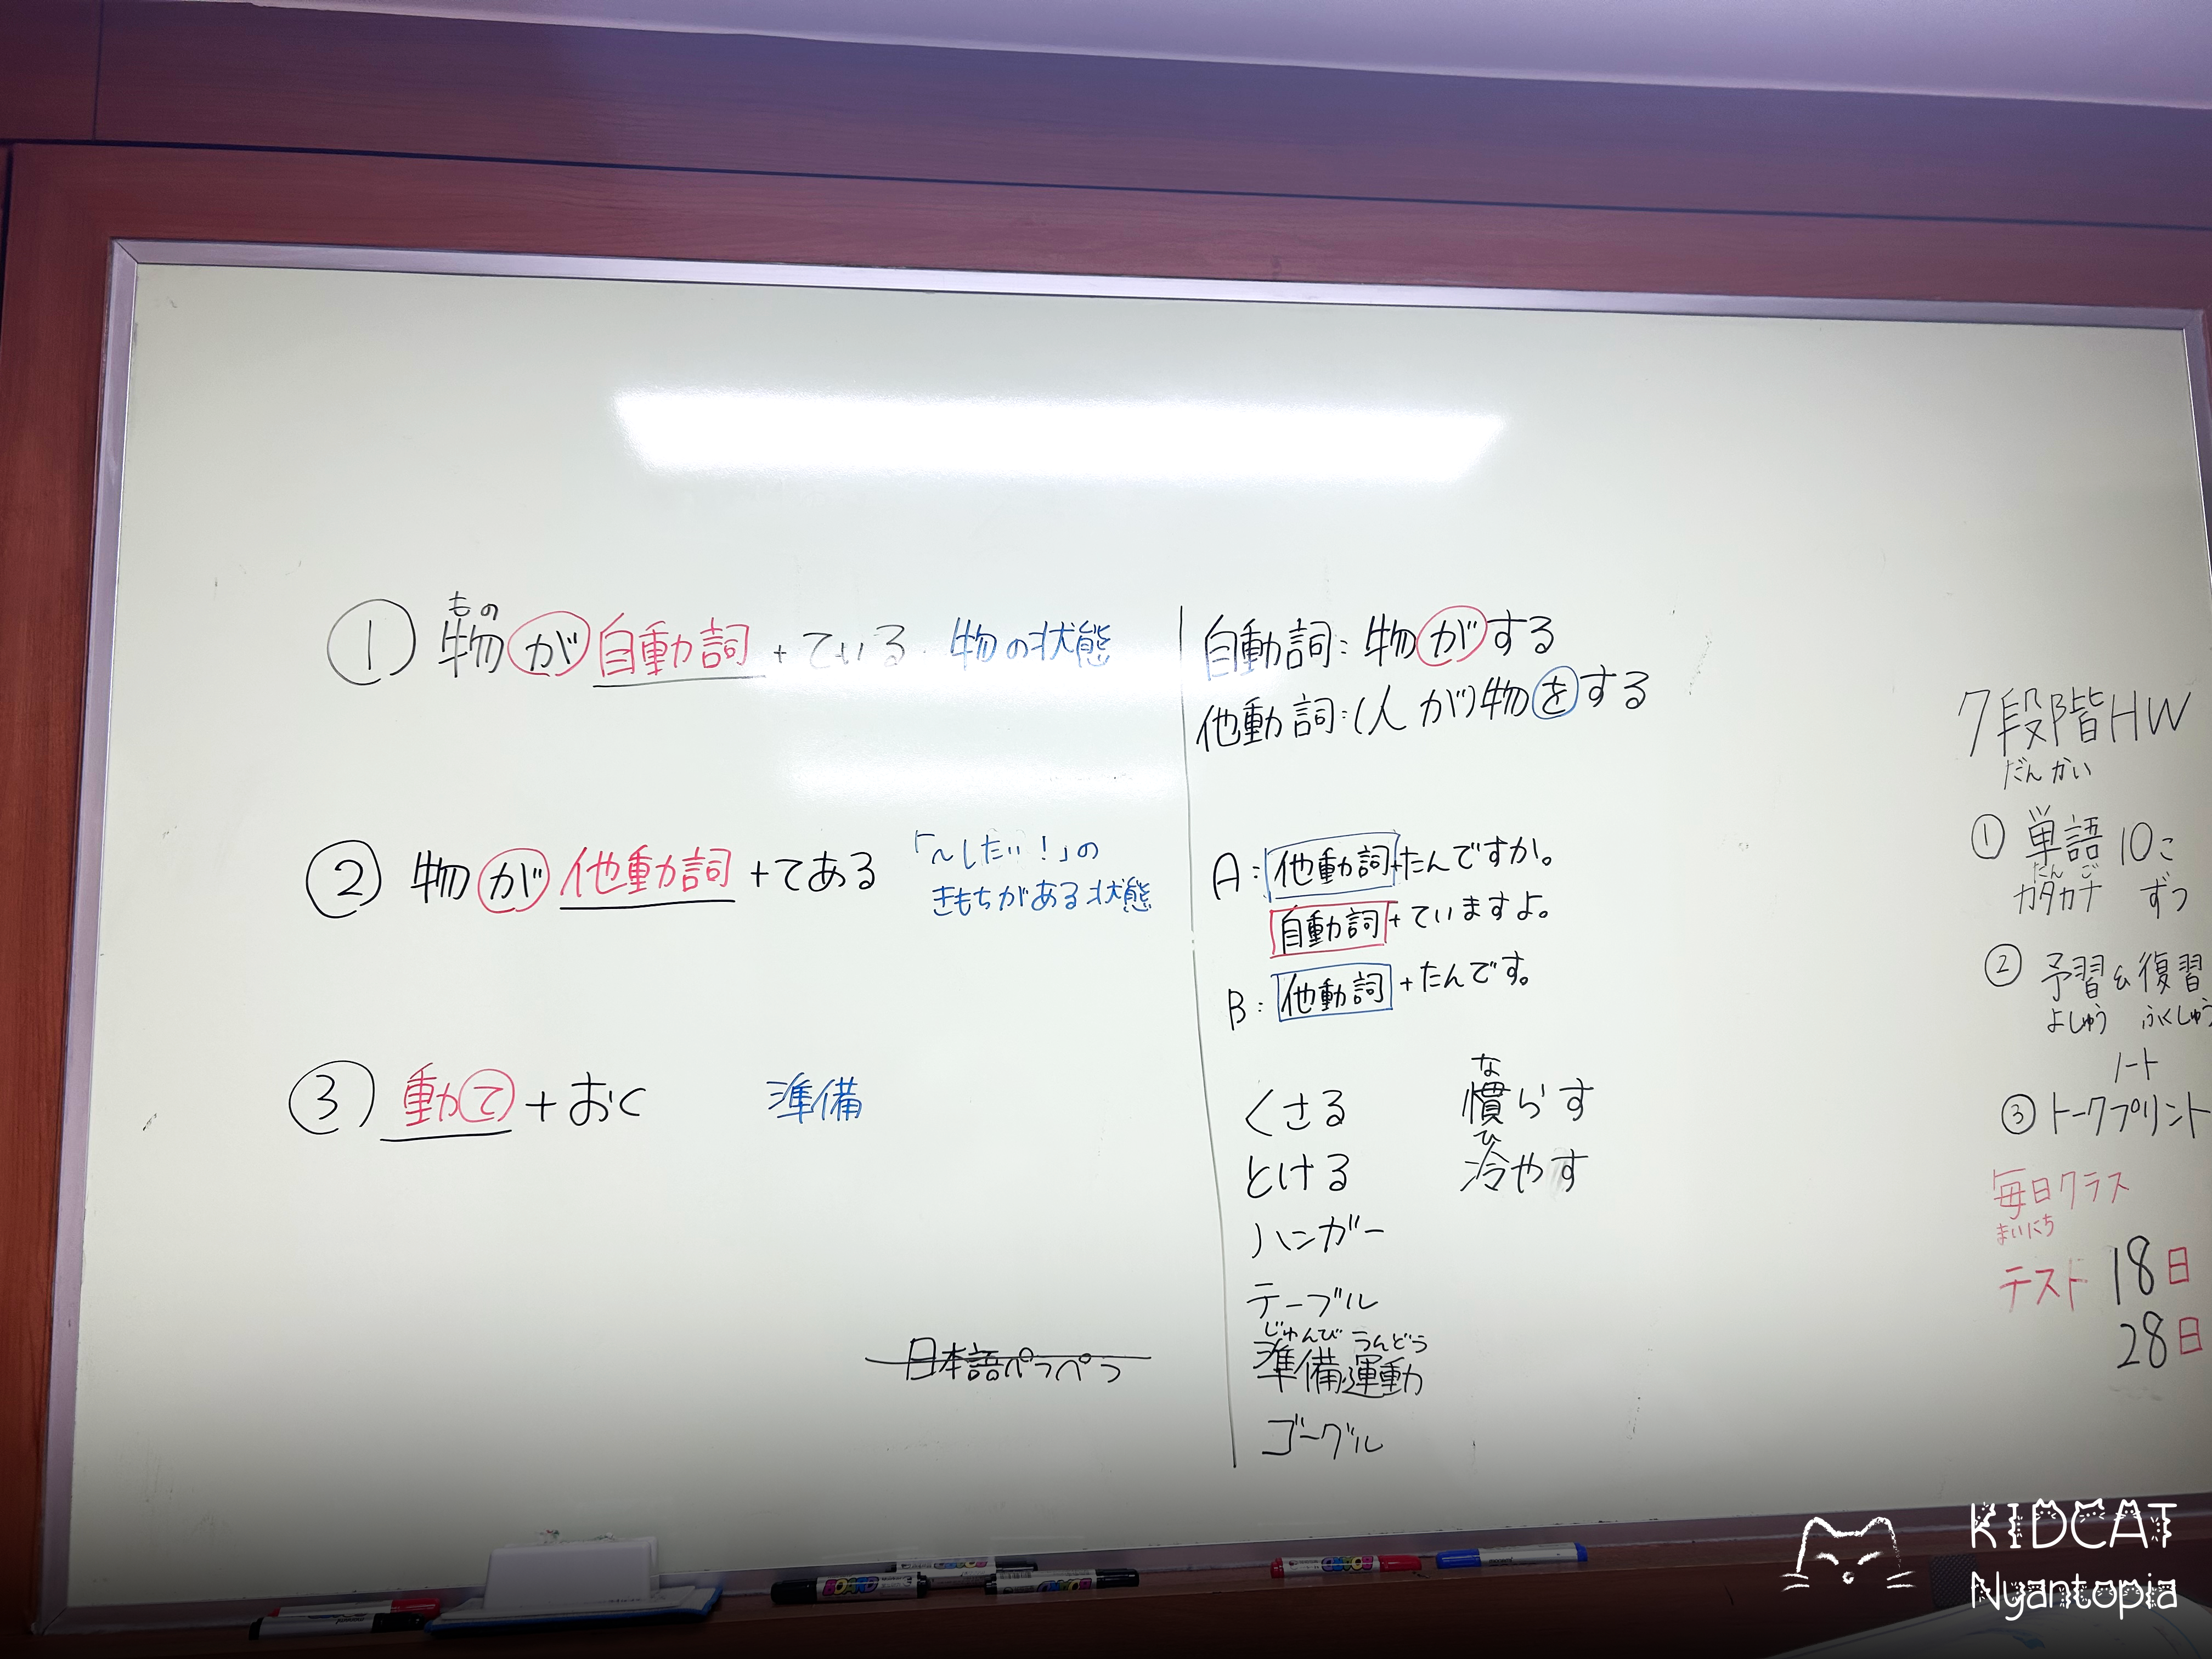 もの
① 物が自動詞+ている 物の状態
② 物が他動詞+てある 「~したい!」の
きもちがある状態
③ 動て+おく 準備
日本語ペラペラ
自動詞:物がする
他動詞:(人が)物をする
A:他動詞+たんですか。
自動詞+ていますよ。
B:他動詞+たんです。
くさる
とける
ハンガー
テーブル
じゅんび うんどう
準備運動
ゴーグル
な
慣らす
ひ
冷やす
7段階HW
だんかい
① 単語 10こ
たんご
カタカナ ずつ
② 予習&復習
よしゅう ふくしゅう
ノート
③ トークプリント
毎日クラス
まいにち
テスト 18日
28日
BOARD
KIDCAT
Nyantopia